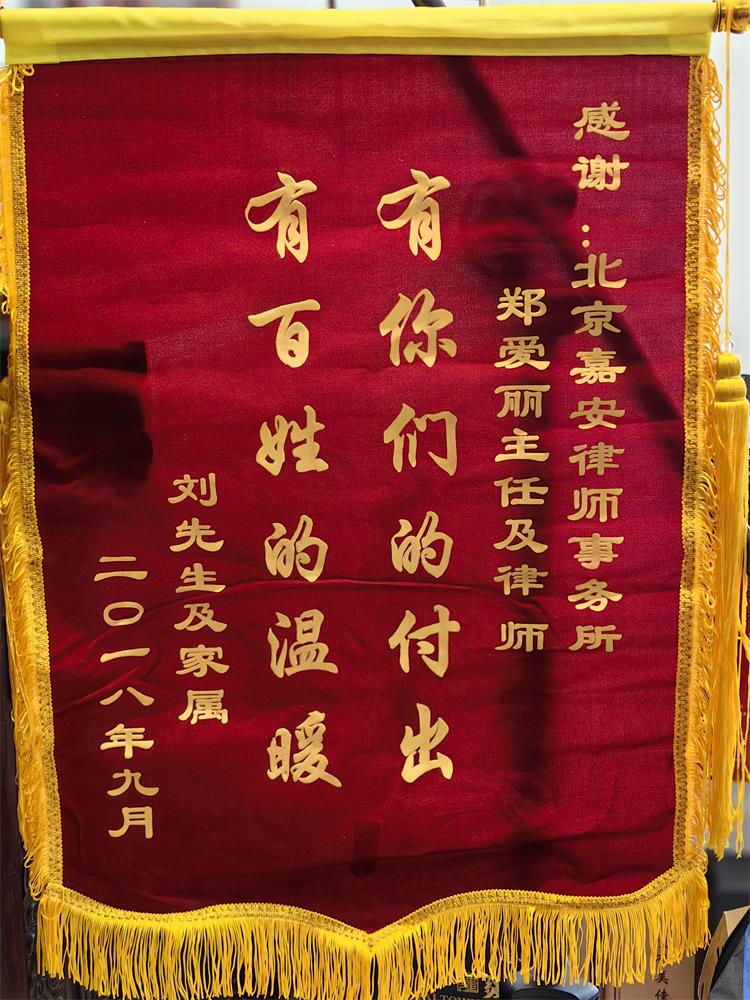 感谢：北京嘉安律师事务所
郑爱丽主任及律师
有你们的付出
有百姓的温暖
刘先生及家属
二〇一八年九月